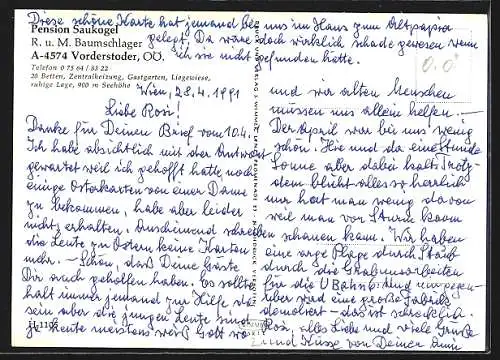 Diese schöne Karte hat jemand bei uns im Haus zum Altpapier
gelegt. Da wäre doch wirklich schade gewesen wenn
ich sie nicht gefunden hätte.
Pension Saukogel
R. u. M. Baumschlager
A-4574 Vorderstoder, OÖ.
Telefon 0 75 64 / 83 22
20 Betten, Zentralheizung, Gastgarten, Liegewiese,
ruhige Lage, 900 m Seehöhe
Wien, 28.4.1991
Liebe Rosi!
Danke für Deinen Brief vom 10.4.
Ich habe absichtlich mit der Antwort
gewartet weil ich gehofft hatte noch
einige Osterkarten von einer Dame
zu bekommen, habe aber leider
nichts erhalten. Anscheinend schreiben
die Leute zu Ostern keine Karten
mehr. – Schön, daß Deine Gäste
Dir auch geholfen haben. Es sollte
halt immer jemand zur Hilfe da
sein aber die jungen Leute sind
ja heute meistens weiß Gott wo
H 1108
und wir alten Menschen
müssen uns allein helfen. –
Der April war bei uns wenig
schön. Hie und da eine Stunde
Sonne aber dabei kalt. Trotz-
dem blüht alles so herrlich
nur hat man wenig davon
weil man vor Sturm kaum
schauen kann. Wir haben
eine arge Plage durch Staub
durch die Grabungsarbeiten
für die U Bahn. Und gegen-
über wird eine große Fabrik
demoliert – das ist schrecklich.
Rosi, alles Liebe und viele Grüße
und Küsse von Deiner Anni